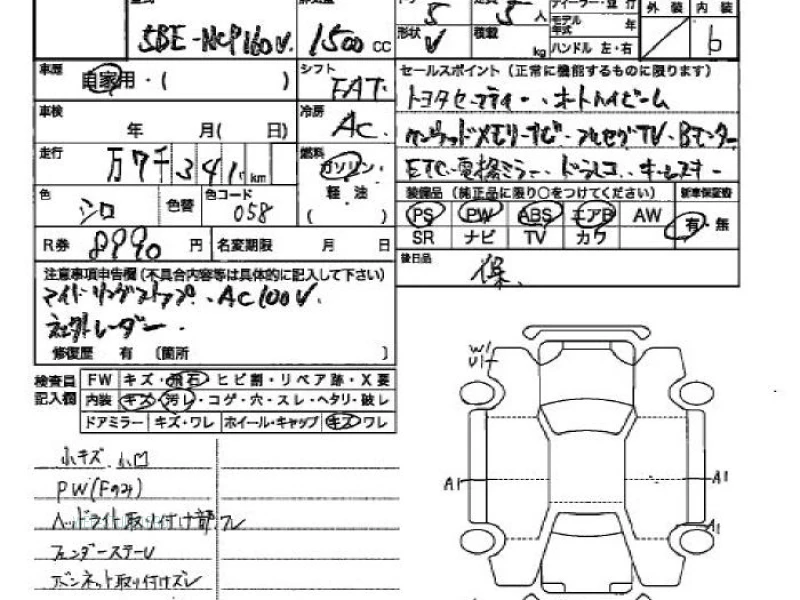 5BE-NCP160V. 1500 CC
5 5人
形状 V 積載 kg
モデル年式 年
ハンドル 左・右
外装 内装
b
車歴 自家用・( )
シフト FAT.
セールスポイント (正常に機能するものに限ります)
トヨタセーフティー、オートハイビーム
ケンウッドメモリーナビ・フルセグTV・Bモニター
ETC・電格ミラー・ドラレコ・キーレスキー
車検 年 月( 日)
冷房 AC.
走行 万7千341 km
燃料 ガソリン・軽・油( )
色 シロ 色替 色コード 058
装備品 (純正品に限り○をつけてください) 新車保証書
PS PW ABS エアB AW 有・無
SR ナビ TV カワ
R券 8990 円 名変期限 月 日
後日品 保、
注意事項申告欄 (不具合内容等は具体的に記入して下さい)
アイドリングストップ、AC100V.
レーダー.
修復歴 有 〔箇所 〕
検査員記入欄 FW キズ・飛石・ヒビ割・リペア跡・X要
内装 キズ・汚レ・コゲ・穴・スレ・ヘタリ・破レ
ドアミラー キズ・ワレ ホイール・キャップ キズ ワレ
小キズ.小凹
PW(Fのみ)
ヘッドライト取り付け部ワレ
フェンダーステーU
ボンネット取り付けズレ
W1
U1
A1 A1
A1